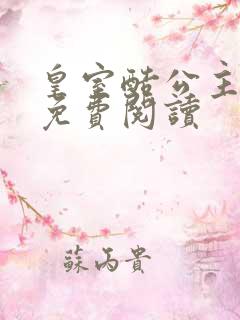 皇室酷公主
免費閱讀
蘇丙貴